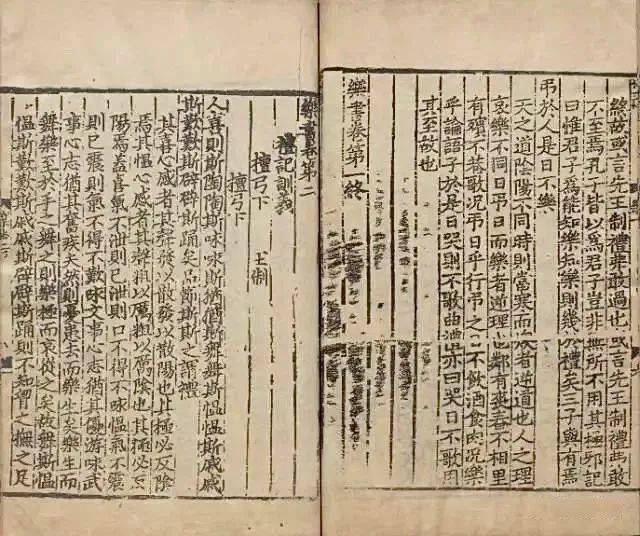 終故或言先王制禮弗敢過也或言先王制禮弗敢
不至焉孔子皆以為君子豈非無所不用其極邪記
曰惟君子為能知樂知樂則幾於禮矣三子與有焉
弔於人是日不樂
天之道陰陽不同時則當寒而者逆道也人之理
哀樂不同日弔日而樂者逆理也鄰有喪舂不相里
有殯不巷歌況弔日乎行弔之不飲酒食肉況樂
乎論語子於是日哭則不歌曲禮亦曰哭日不歌
其至故也
樂書卷第一終
樂書卷第二
禮記訓義
檀弓下
檀弓下 王制
人喜則斯陶陶斯咏咏斯猶猶斯舞舞斯慍慍斯戚戚
斯歎歎斯辟辟斯踊矣品節斯斯之謂禮
其喜心感者其聲發以散發以散陽也其極必反陰
焉其慍心感者其聲粗以厲粗以厲陰也其極必反
陽焉蓋喜氣不泄則已泄則口不得不咏慍氣不震
則已震則氣不得不歎咏文事心志猶其優游咏武
事心志猶其奮疾矣然則憂患去而樂生至樂生而
舞樂至於手之舞之則樂極而哀從之矣故舞斯慍
慍斯歎歎斯戚戚斯辟辟斯踊則不知胷之撫之足